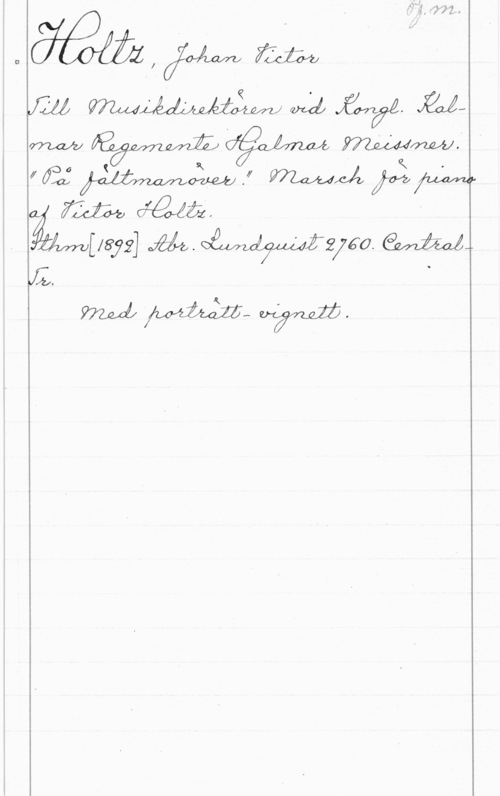 Öj. m.
Holtz, Johan Victor
Till Musikdirektören vid Kongl. Kal-
mar Regemente Hjalmar Meissner.
"På fältmanöver." Marsch för piano
af Victor Holtz.
Sthm [1892] Abr. Lundquist 2760. Central-
Tr.
Med porträtt-vignett.